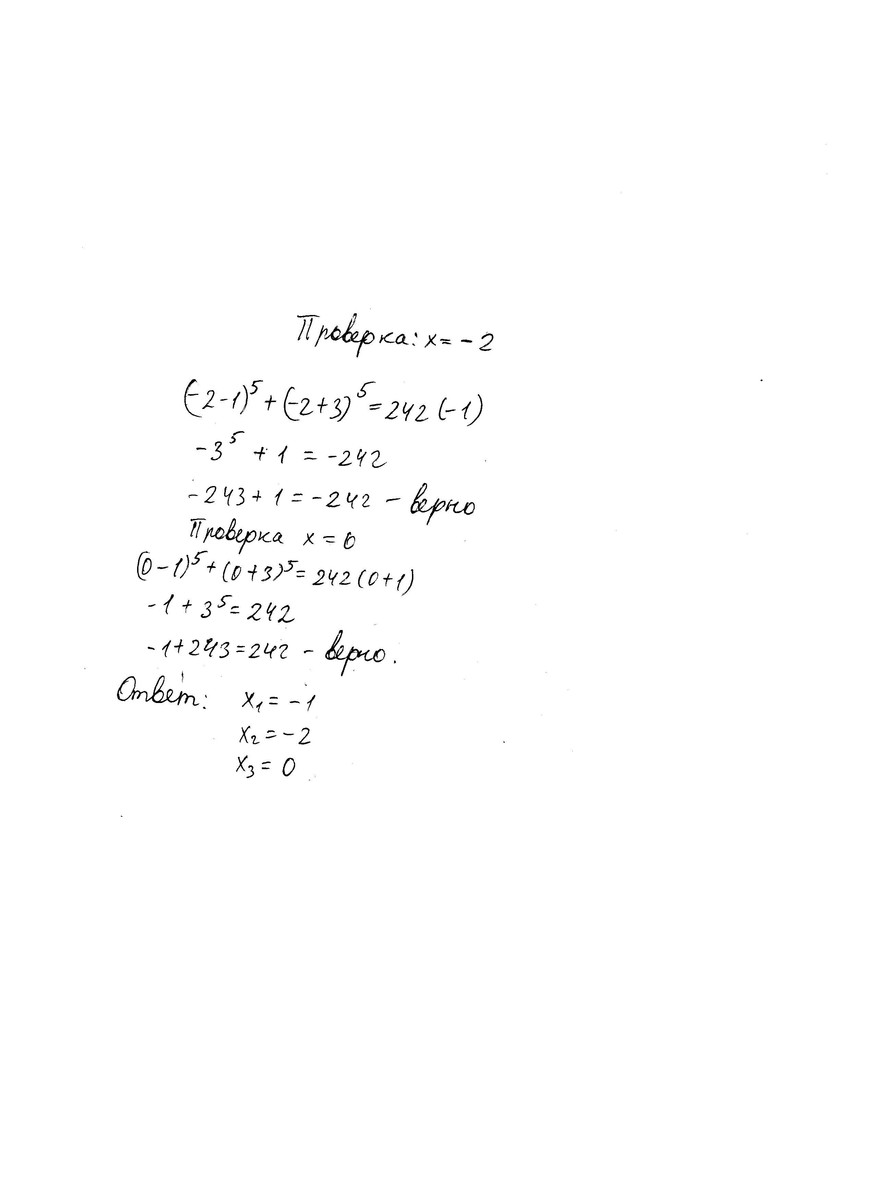 Проверка: x = -2
(-2-1)^5 + (-2+3)^5 = 242 (-1)
-3^5 + 1 = -242
-243 + 1 = -242 - верно
Проверка x = 0
(0-1)^5 + (0+3)^5 = 242 (0+1)
-1 + 3^5 = 242
-1 + 243 = 242 - верно.
Ответ: x₁ = -1
x₂ = -2
x₃ = 0